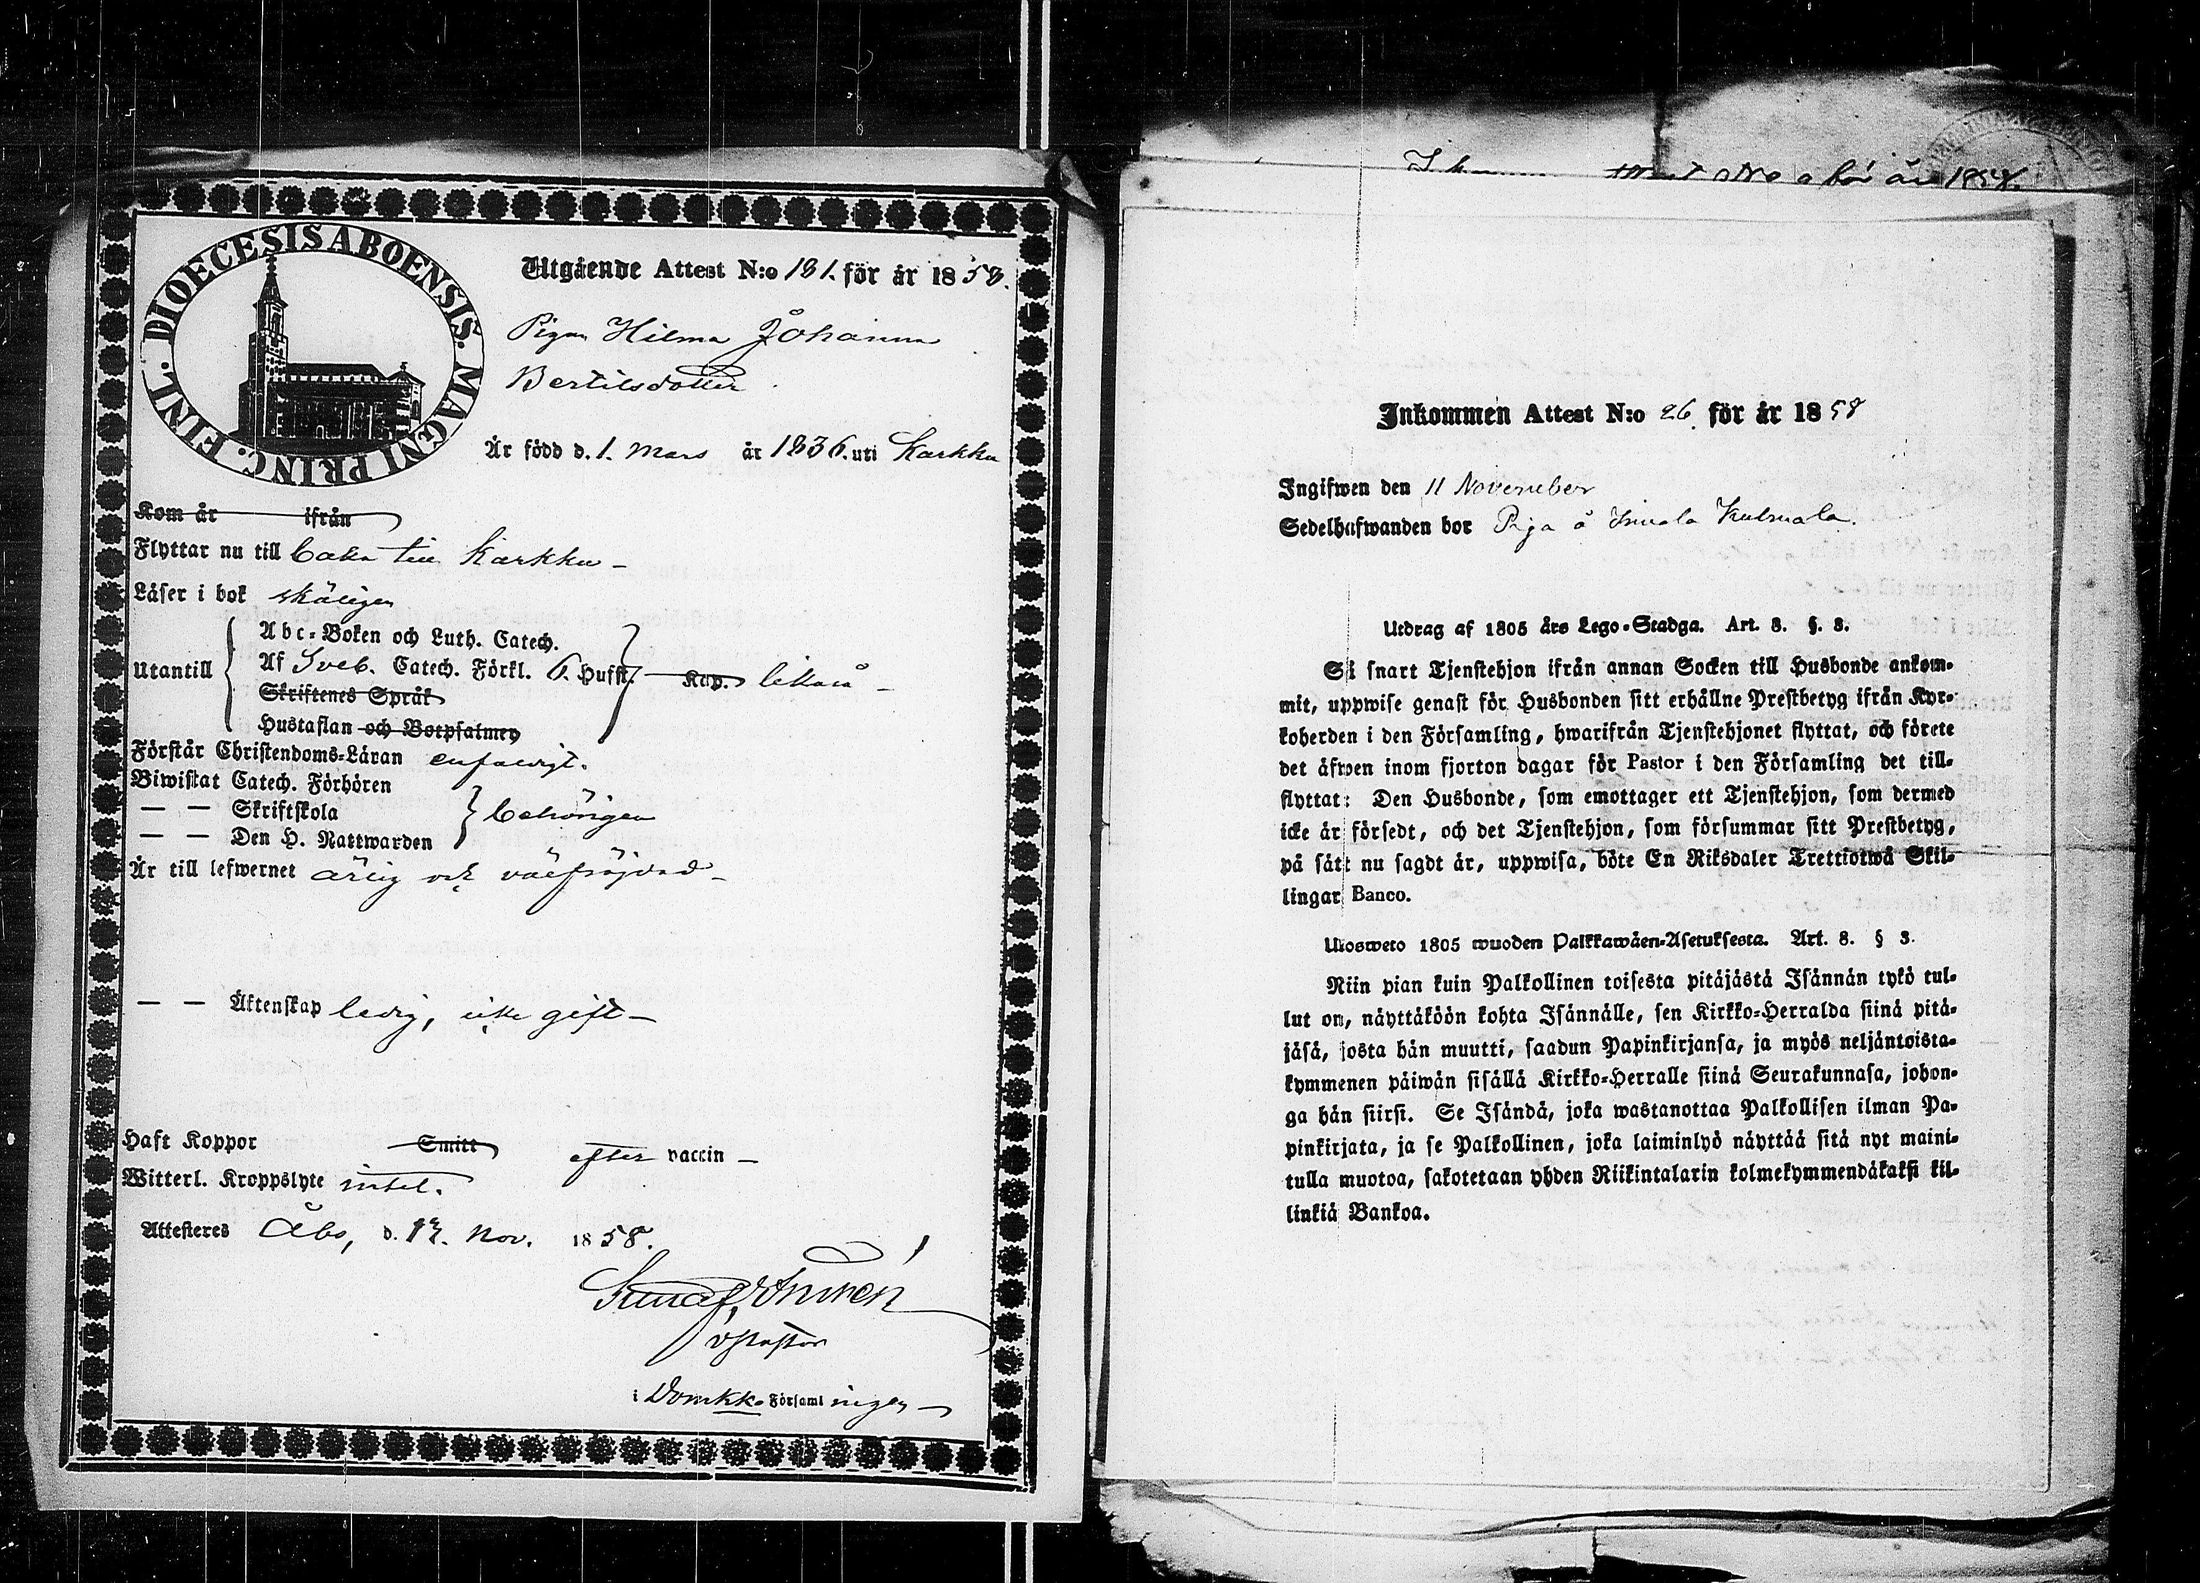 DIOECESIS ABOENSIS. MAGNI PRINC. FINL.
Utgående Attest N:o 181. för år 1858.
Pigan Hilma Johanna
Bertilsdotter
Är född d. 1. Mars år 1836. uti Karkku
Kom år ifrån
Flyttar nu till baka till Karkku –
Läser i bok skäligen
Utantill
Abc-Boken och Luth. Catech.
Af Sveb. Catech. Förkl. 6. Hufst. Kap. likaså –
Skriftenes Språk
Hustaflan och Botpsalmen
Förstår Christendoms-Läran enfaldigt.
Biwistat Catech. Förhören
— — Skriftskola behörigen
— — Den H. Nattwarden
Är till lefwernet ärlig och välfrejdad –
— — Äktenskap ledig, icke gift –
Haft Koppor Smitt efter vaccin –
Witterl. Kroppslyte intet.
Attesteras Åbo, d. 12. Nov. 1858.
v Pastor
i Domkko Församlingen –
för år 1858.
Inkommen Attest N:o 26. för år 1858
Ingifwen den 11 November
Sedelhafwanden bor Piga å
Utdrag af 1805 års Lego-Stadga. Art. 8. §. 3.
Så snart Tjenstehjon ifrån annan Socken till Husbonde ankom-
mit, uppwise genast för Husbonden sitt erhållne Prestbetyg ifrån Kyr-
koherden i den Församling, hwarifrån Tjenstehjonet flyttat, och förete
det äfwen inom fjorton dagar för Pastor i den Församling det till-
flyttat: Den Husbonde, som emottager ett Tjenstehjon, som dermed
icke är försedt, och det Tjenstehjon, som försummar sitt Prestbetyg,
på sätt nu sagdt är, uppwisa, böte En Riksdaler Trettiotwå Skil-
lingar Banco.
Utosweto 1805 wuoden Palkkawäen-Asetuksesta. Art. 8. § 3.
Niin pian kuin Palkollinen toisesta pitäjästä Isännän tykö tul-
lut on, näyttäköön kohta Isännälle, sen Kirkko-Herralda siinä pitä-
jäsä, josta hän muutti, saadun Papinkirjansa, ja myös neljäntoista-
kymmenen päiwän sisällä Kirkko-Herralle siinä Seurakunnasa, johon-
ga hän siirsi. Se Isändä, joka wastanottaa Palkollisen ilman Pa-
pinkirjata, ja se Palkollinen, joka laiminlyö näyttää sitä nyt maini-
tulla muotoa, sakotetaan yhden Riikintalarin kolmekymmendäkaksi kil-
linkiä Bankoa.